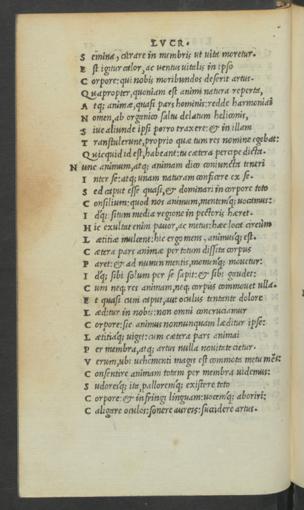 LVCR.
S emina, curare in membris ut uita moretur.
E st igitur calor, ac uentus uitalis in ipso
C orpore: qui nobis moribundos deserit artus.
Q uapropter, quoniam est animi natura reperta,
A tq; animæ, quasi pars hominis: redde harmoniai
N omen, ab organico saltu delatum heliconis,
S iue aliunde ipsi porro traxere: & in illam
T ranstulerunt, proprio quæ tum res nomine egebat:
Q uicquid id est, habeant: tu cætera percipe dicta.
N unc animum, atq; animam dico coniuncta teneri
I nter se: atq; unam naturam conficere ex se.
S ed caput esse quasi, & dominari in corpore toto
C onsilium: quod nos animum, mentemq; uocamus:
I dq; situm media regione in pectoris hæret.
H ic exultat enim pauor, ac metus: hæc loca circum
L ætitiæ mulcent: hic ergo mens, animusq; est.
C ætera pars animæ per totum dissita corpus
P aret: & ad numen mentis, momenq; mouetur.
I dq; sibi solum per se sapit: & sibi gaudet:
C um neq; res animam, neq; corpus commouet ulla.
E t quasi cum caput, aut oculus tentante dolore
L æditur in nobis: non omni concruciamur
C orpore: sic animus nonnunquam læditur ipse:
L ætitiaq; uiget: cum cætera pars animai
P er membra, atq; artus nulla nouitate cietur.
V erum, ubi uehementi magis est commota metu mēs:
C onsentire animam totam per membra uidemus:
S udoresq; ita, palloremq; existere toto
C orpore: & infringi linguam: uocemq; aboriri:
C aligare oculos: sonere aures: succidere artus.